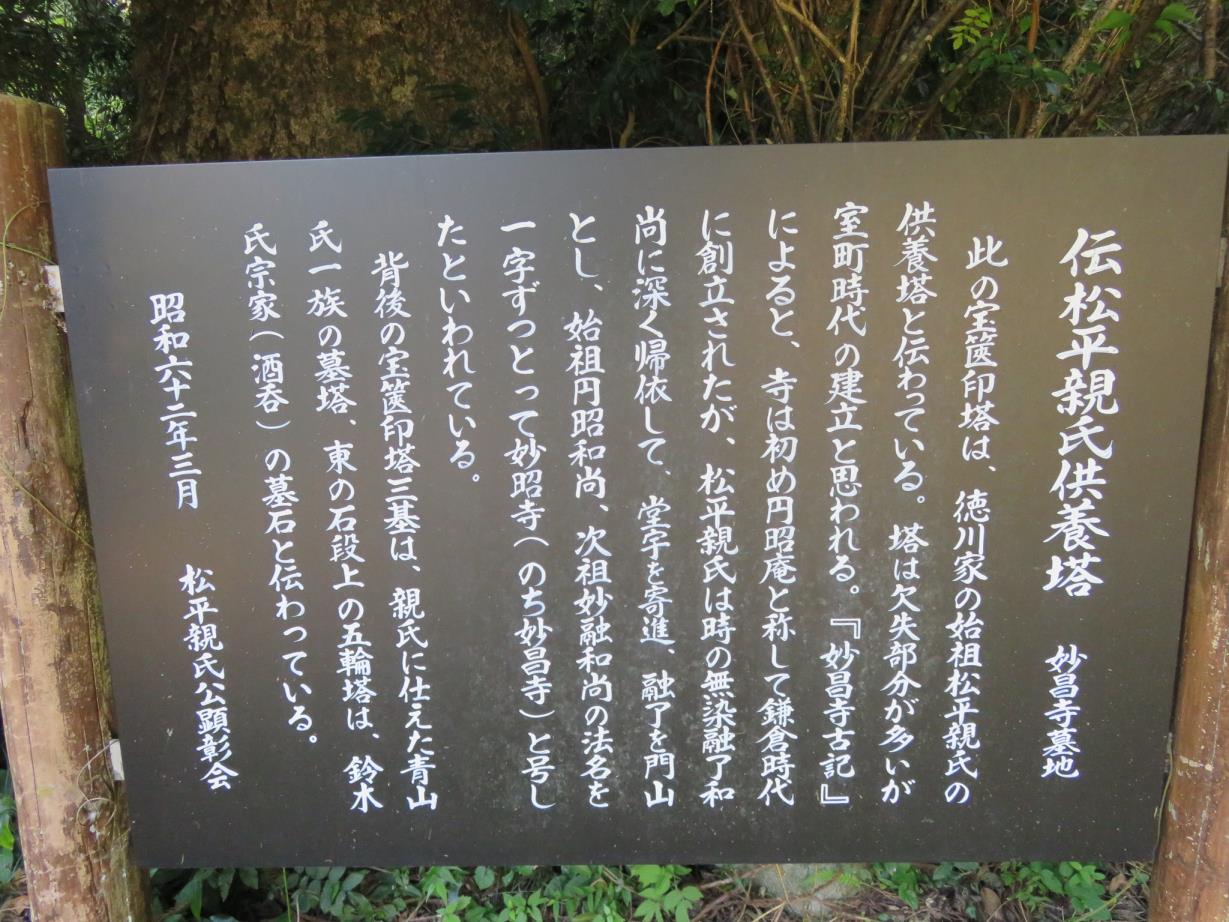 伝松平親氏供養塔　妙昌寺墓地
此の宝篋印塔は、徳川家の始祖松平親氏の
供養塔と伝わっている。塔は欠失部分が多いが
室町時代の建立と思われる。『妙昌寺古記』
によると、寺は初め円昭庵と称して鎌倉時代
に創立されたが、松平親氏は時の無染融了和
尚に深く帰依して、堂宇を寄進、融了を門山
とし、始祖円昭和尚、次祖妙融和尚の法名を
一字ずつとって妙昭寺(のち妙昌寺)と号し
たといわれている。
背後の宝篋印塔三基は、親氏に仕えた青山
氏一族の墓塔、東の石段上の五輪塔は、鈴木
氏宗家(酒呑)の墓石と伝わっている。
昭和六十二年三月　松平親氏公顕彰会